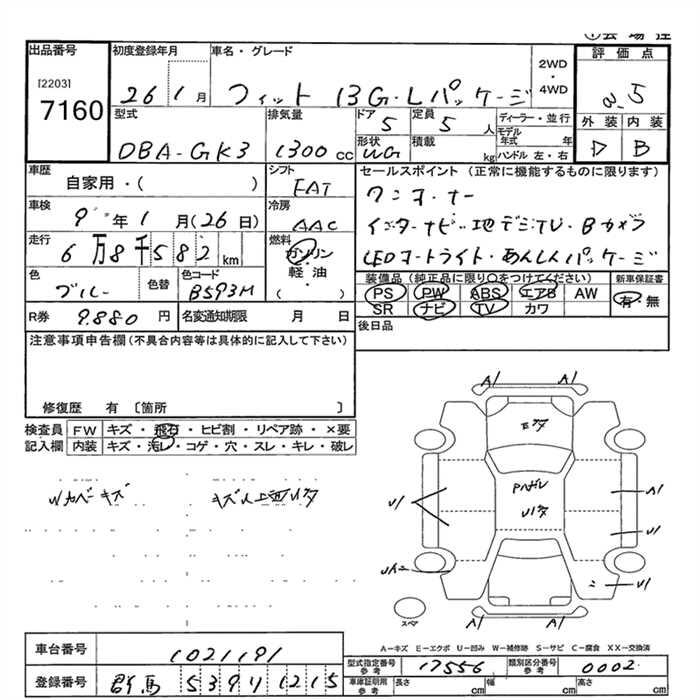 出品番号
[2203]
7160
初度登録年月
26 1月
車名・グレード
フィット 13G・Lパッケージ
2WD・4WD
評価点
3.5
外装 内装
D B
型式
DBA-GK3
排気量
1300cc
ドア
5
定員
5人
ディーラー・並行
モデル年式 年
ハンドル 左・右
形状
WG
積載
kg
車歴
自家用・( )
シフト
FAT
セールスポイント (正常に機能するものに限ります)
ワンオーナー
インターナビ・地デジTV・Bカメラ
LEDオートライト・あんしんパッケージ
車検
9年1月(26日)
冷房
AAC
走行
6万8千582km
燃料
ガソリン
軽油
( )
色
ブルー
色替
色コード
B593M
装備品(純正品に限り○をつけてください)
PS PW ABS エアB AW
SR ナビ TV カワ
新車保証書
有・無
R券
9.880円
名変通知期限 月 日
後日品
注意事項申告欄(不具合内容等は具体的に記入して下さい)
修復歴 有 〔箇所 〕
検査員記入欄
FW キズ・飛石・ヒビ割・リペア跡・×要
内装 キズ・汚レ・コゲ・穴・スレ・キレ・破レ
A1 A1
U1
A1
U1
U1
スペア
A-キズ E-エクボ U-凹み W-補修跡 S-サビ C-腐食 XX-交換済
車台番号
1021191
登録番号
群馬 539 1 1215
型式指定番号参考
17556
類別区分番号参考
0002
車庫証明用参考
長さ cm
幅 cm
高さ cm